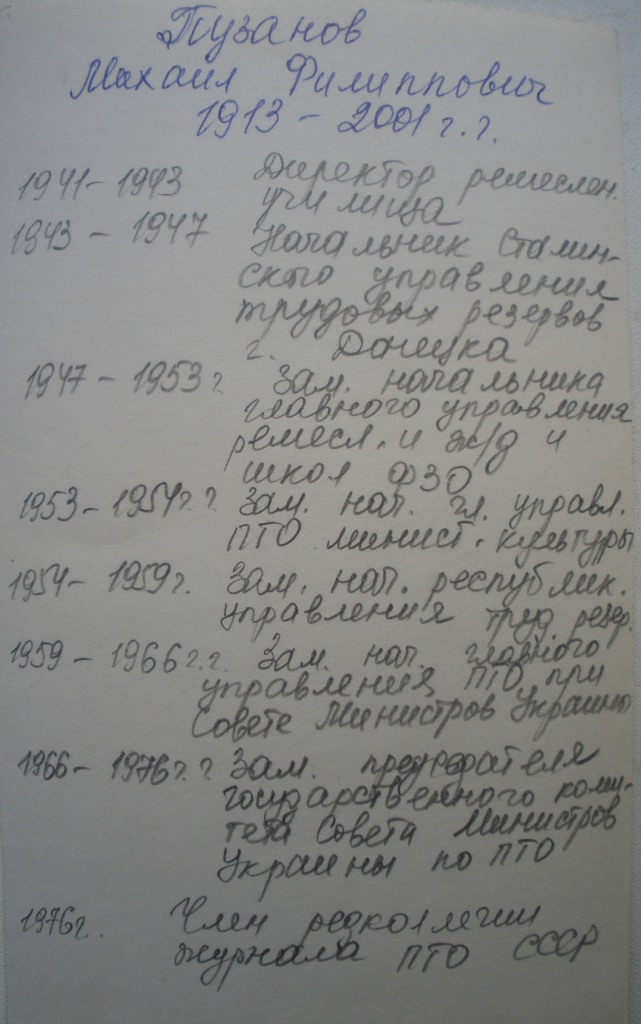 Пузанов
Михаил Филиппович
1913 - 2001 г.г.
1941-1943 Директор ремеслен.
училища
1943 - 1947 Начальник Сталин-
ского управления
трудовых резервов
г. Донецка
1947 - 1953 г Зам. начальника
главного управления
ремесл. и ж/д и
школ ФЗО
1953 - 1954 г.г. Зам. нач. гл. управл.
ПТО минист. культуры
1954 - 1959 г. Зам. нач. республик.
управления труд резер.
1959 - 1966 г.г. Зам. нач. главного
управления ПТО при
Совете Министров Украины
1966 - 1976 г.г Зам. председателя
государственного коми-
тета Совета Министров
Украины по ПТО
1976 г. Член редколлегии
журнала ПТО СССР